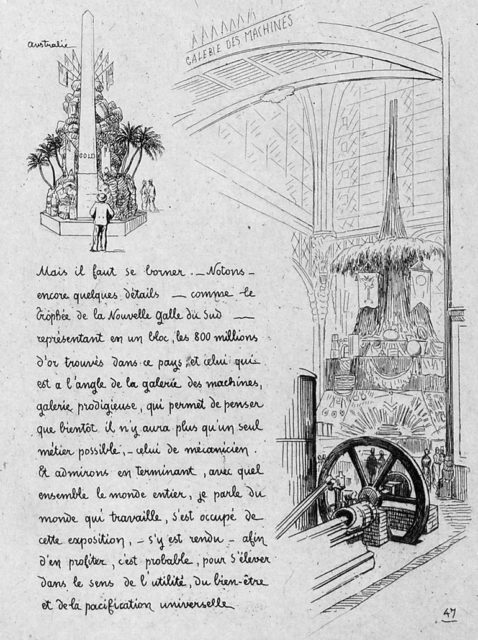 australie
GALERIE DES MACHINES
GOLD
Mais il faut se borner. _ Notons _
encore quelques détails _ comme le
trophée de la Nouvelle Galle du Sud _
représentant en un bloc, les 800 millions
d'or trouvés dans ce pays, et celui qui
est a l'angle de la galerie des machines,
galerie prodigieuse, qui permet de penser
que bientôt il n'y aura plus qu'un seul
métier possible, _ celui de mécanicien.
Et admirons en terminant, avec quel
ensemble le monde entier, je parle du
monde qui travaille, s'est occupé de
cette exposition, _ s'y est rendu _ afin
d'en profiter, c'est probable, pour s'élever
dans le sens de l'utilité, du bien-être
et de la pacification universelle
47